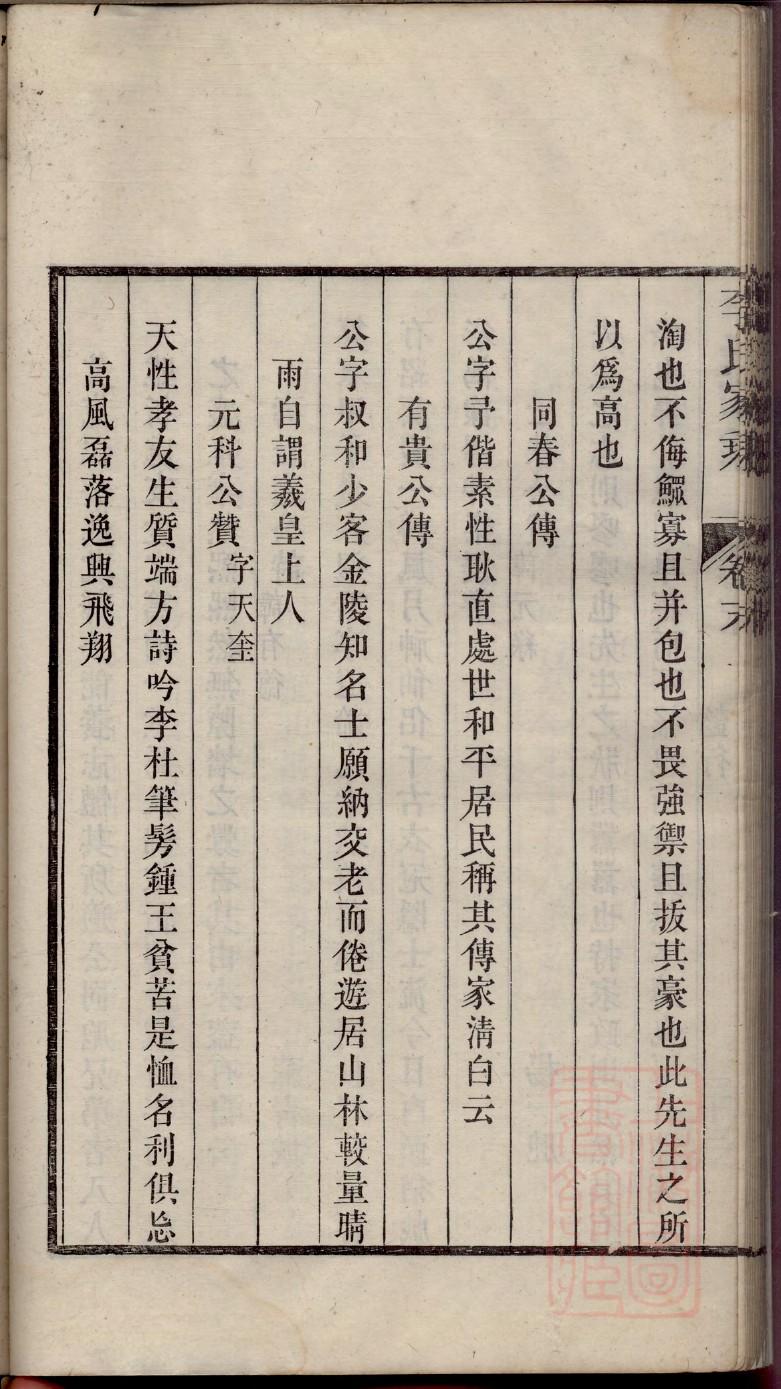 李氏家乘 卷末
淘也不侮鰥寡且并包也不畏強禦且拔其豪也此先生之所
以爲高也
同春公傳
公字予偕素性耿直處世和平居民稱其傳家清白云
有貴公傳
公字叔和少客金陵知名士願納交老而倦遊居山林較量晴
雨自謂羲皇上人
元科公贊 字天奎
天性孝友生質端方詩吟李杜筆髣鍾王貧苦是恤名利俱忘
高風磊落逸興飛翔